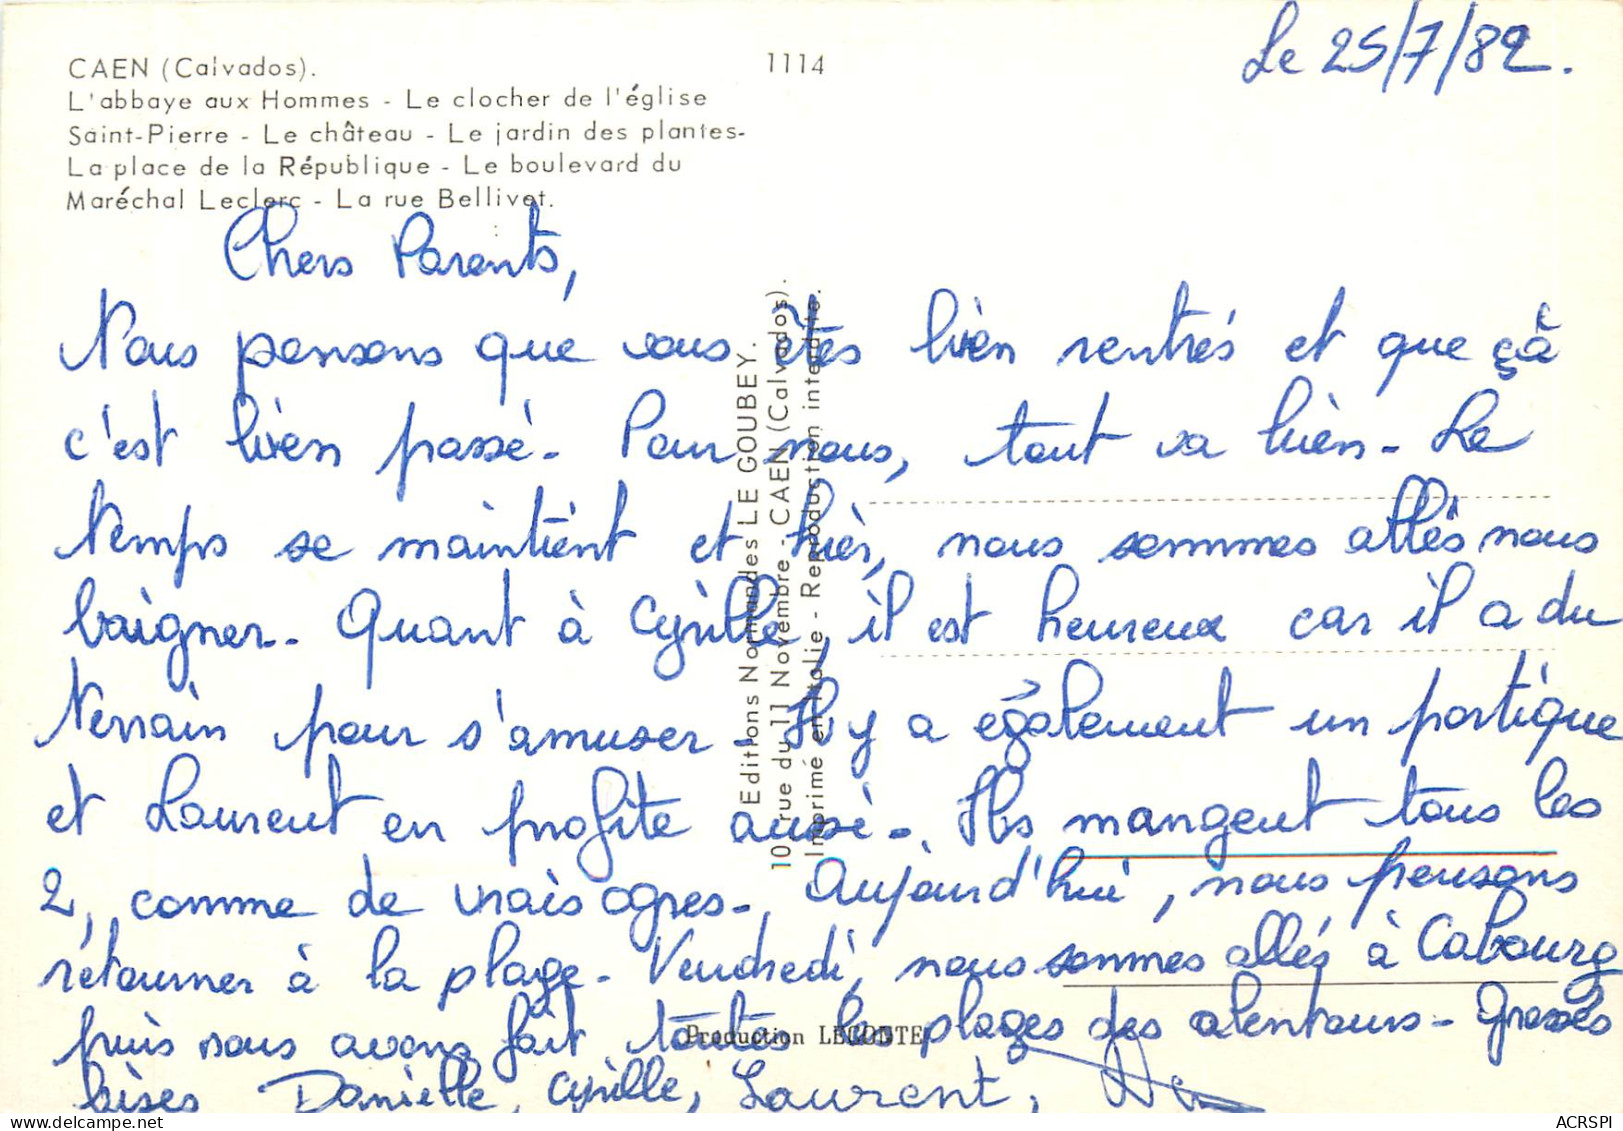 Le 25/7/82.
CAEN (Calvados).
1114
L'abbaye aux Hommes - Le clocher de l'église
Saint-Pierre - Le château - Le jardin des plantes-
La place de la République - Le boulevard du
Maréchal Leclerc - La rue Bellivet.
Chers Parents,
Nous pensons que vous êtes bien rentrés et que çà
c'est bien passé. Pour nous, tout va bien. Le
temps se maintient et hier, nous sommes allés nous
baigner. Quant à Cyrille, il est heureux car il a du
terrain pour s'amuser. Il y a également un portique
et Laurent en profite aussi. Ils mangent tous les
2, comme de vrais ogres. Aujourd'hui, nous pensons
retourner à la plage. Vendredi, nous sommes allés à Cabourg
puis nous avons fait toutes les plages des alentours. Grosses
bises Danielle, Cyrille, Laurent,
Editions Normandes LE GOUBEY.
10, rue du 11 Novembre - CAEN (Calvados).
Imprimé en Italie - Reproduction interdite.
Production LECONTE
ACRSPI